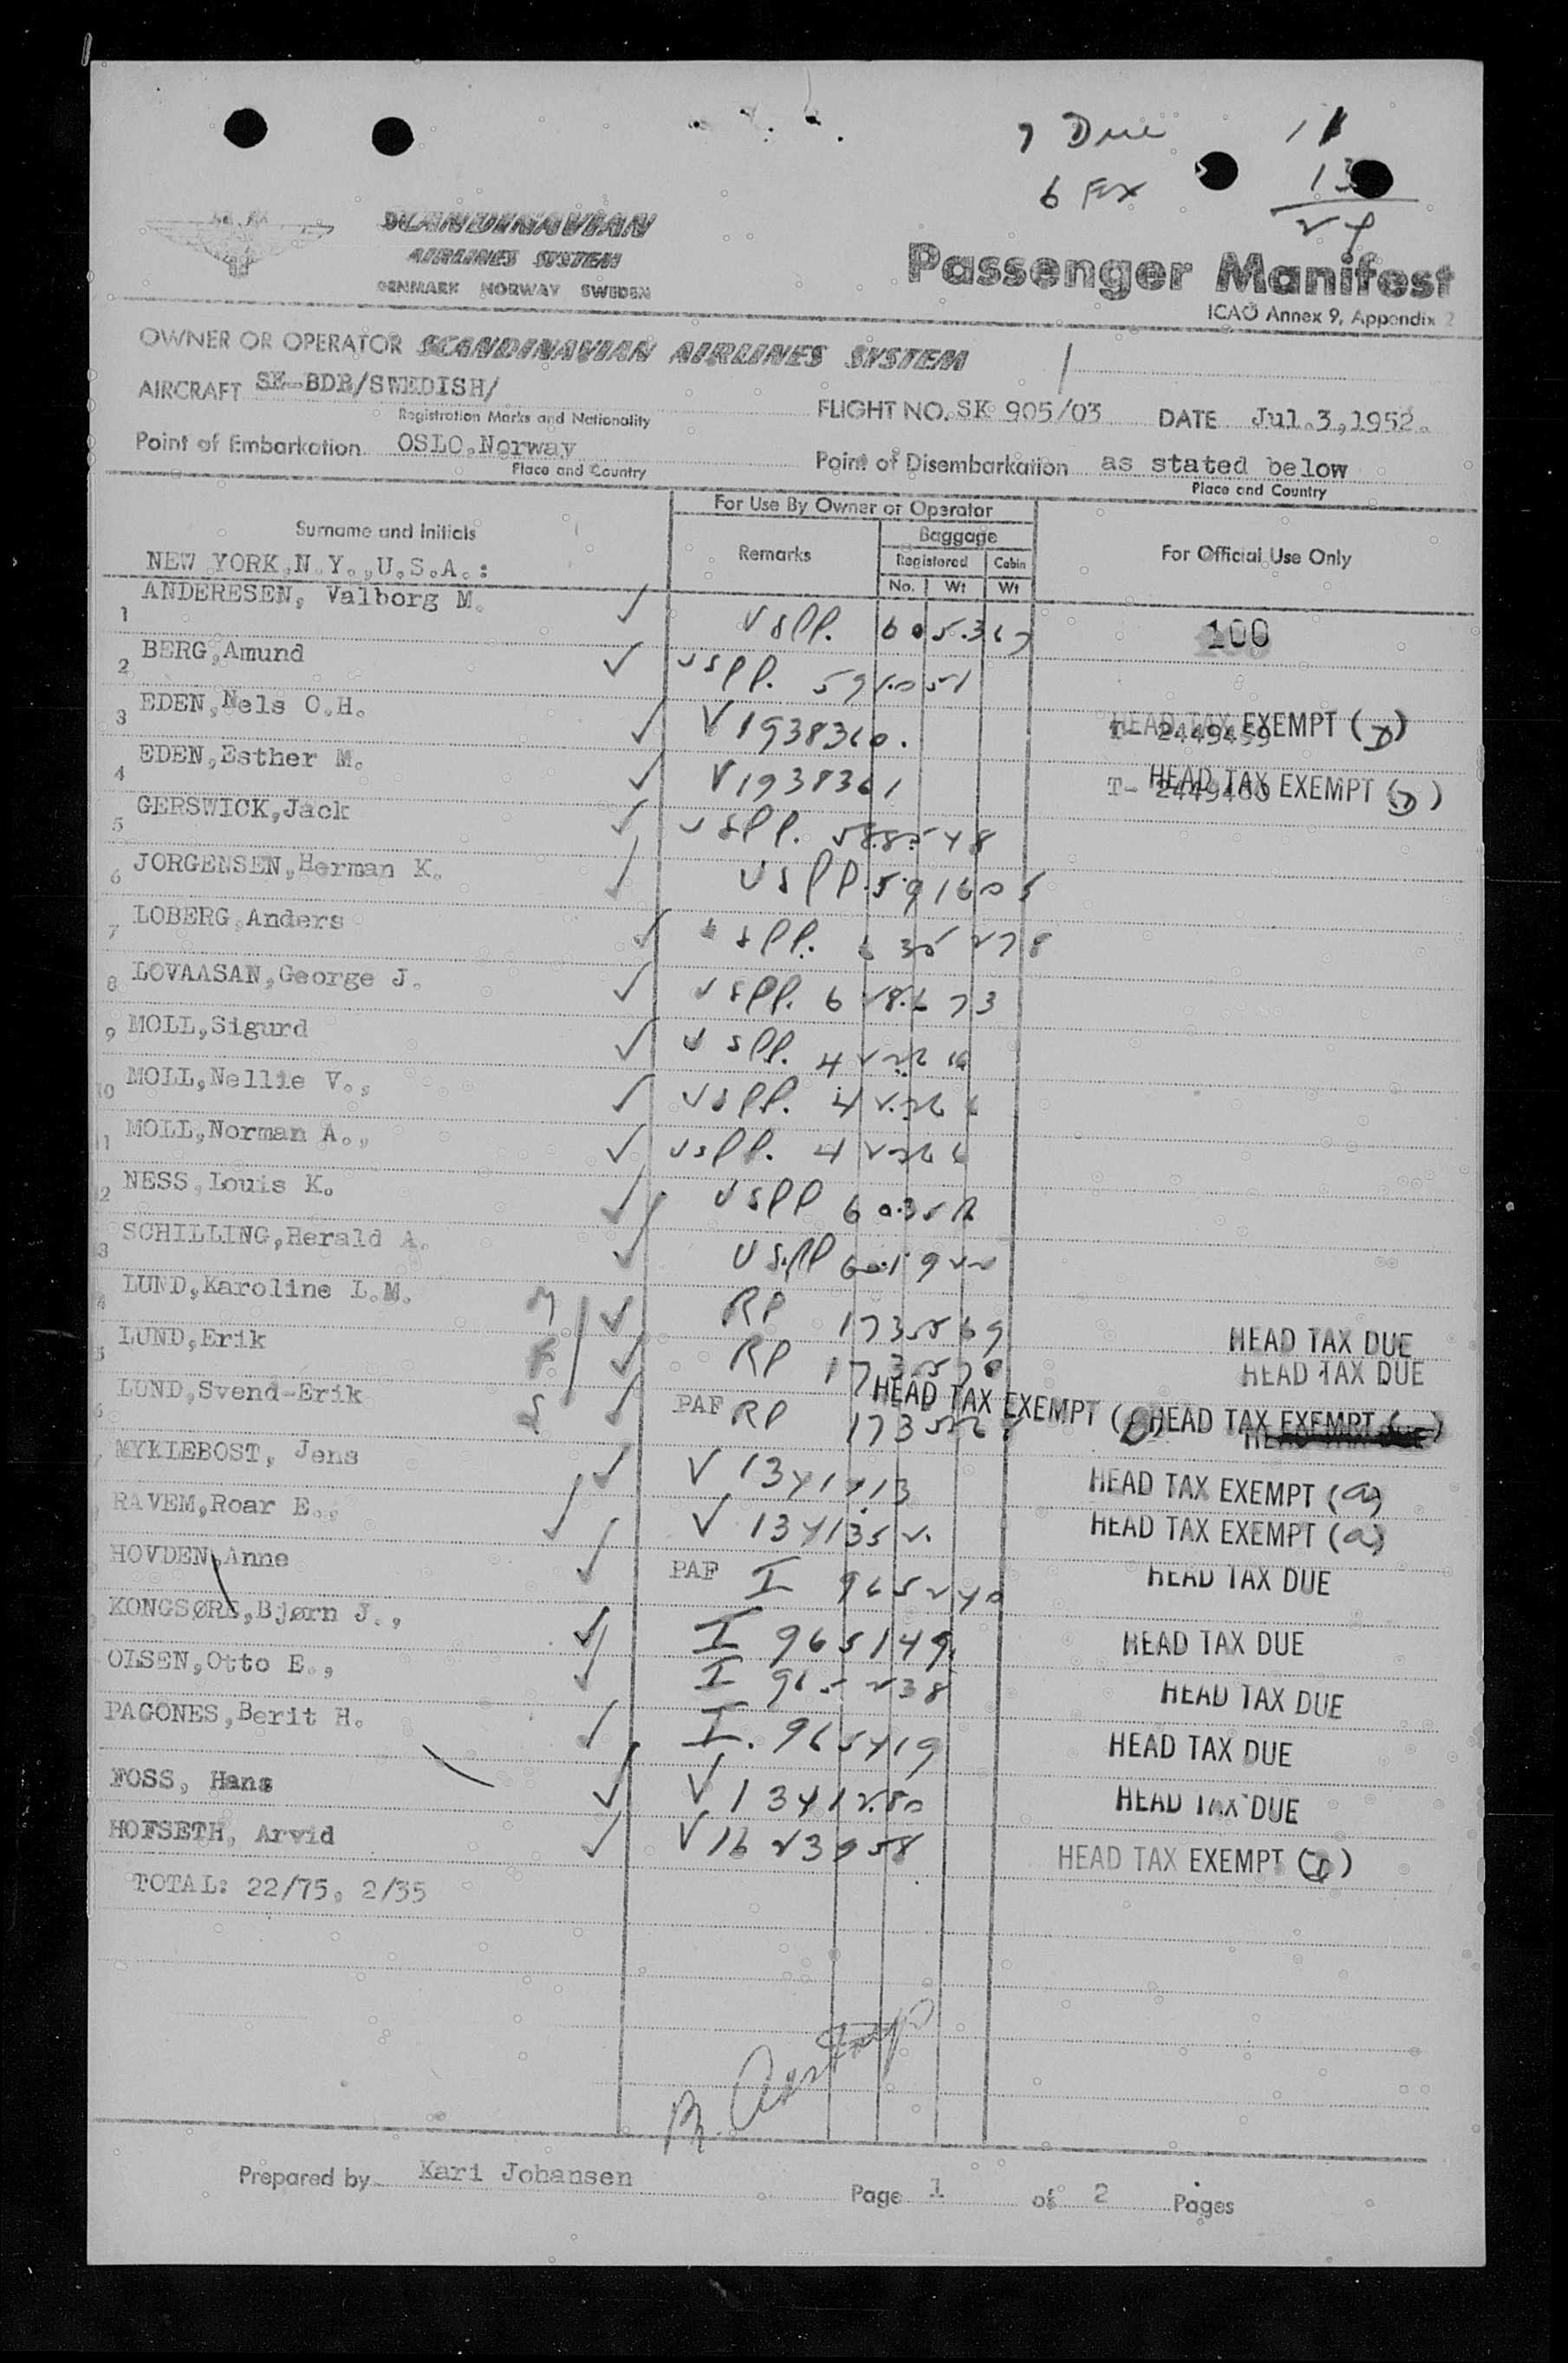 7 Due
6 Ex
11
13
24
SCANDINAVIAN
AIRLINES SYSTEM
DENMARK NORWAY SWEDEN
Passenger Manifest
ICAO Annex 9, Appendix 2
OWNER OR OPERATOR SCANDINAVIAN AIRLINES SYSTEM
AIRCRAFT SE-BDR/SWEDISH/
Registration Marks and Nationality
FLIGHT NO. SK 905/03 DATE Jul.3,1952.
Point of Embarkation OSLO,Norway
Place and Country
Point of Disembarkation as stated below
Place and Country
Surname and Initials
For Use By Owner or Operator
Remarks
Baggage
Registered Cabin
No. Wt Wt
For Official Use Only
NEW YORK,N.Y.,U.S.A.:
1 ANDERESEN, Valborg M. ✓ USPP. 605.367 100
2 BERG,Amund ✓ USPP. 591.051
3 EDEN,Nels O.H. ✓ V 1938360. T- 2449459 HEAD TAX EXEMPT (D)
4 EDEN,Esther M. ✓ V 1938361 T- 2449460 HEAD TAX EXEMPT (D)
5 GERSWICK,Jack ✓ USPP. 588548
6 JORGENSEN,Herman K. ✓ USPP. 591605
7 LOBERG,Anders ✓ USPP. 635278
8 LOVAASAN,George J. ✓ USPP. 628.673
9 MOLL,Sigurd ✓ USPP.
10 MOLL,Nellie V., ✓ USPP.
11 MOLL,Norman A., ✓ USPP.
12 NESS,Louis K. ✓ USPP
13 SCHILLING,Herald A. ✓ USPP 601922
LUND,Karoline L.M. M ✓ RP 1735569 HEAD TAX DUE
LUND,Erik F ✓ RP 1735570 HEAD TAX DUE
LUND,Svend-Erik S ✓ PAF RP HEAD TAX EXEMPT HEAD TAX EXEMPT
MYKLEBOST, Jens ✓ V 1341213 HEAD TAX EXEMPT (a)
RAVEM,Roar E., ✓ V 1341352. HEAD TAX EXEMPT (a)
HOVDEN,Anne ✓ PAF I 965240 HEAD TAX DUE
KONGSØRE,Bjørn J., ✓ I 965149 HEAD TAX DUE
OLSEN,Otto E., ✓ I 965238 HEAD TAX DUE
PAGONES,Berit H. ✓ I. 965419 HEAD TAX DUE
FOSS, Hans ✓ V 1341280 HEAD TAX DUE
HOFSETH, Arvid ✓ V 1623958 HEAD TAX EXEMPT (D)
TOTAL: 22/75. 2/35
Prepared by Kari Johansen
Page 1 of 2 Pages